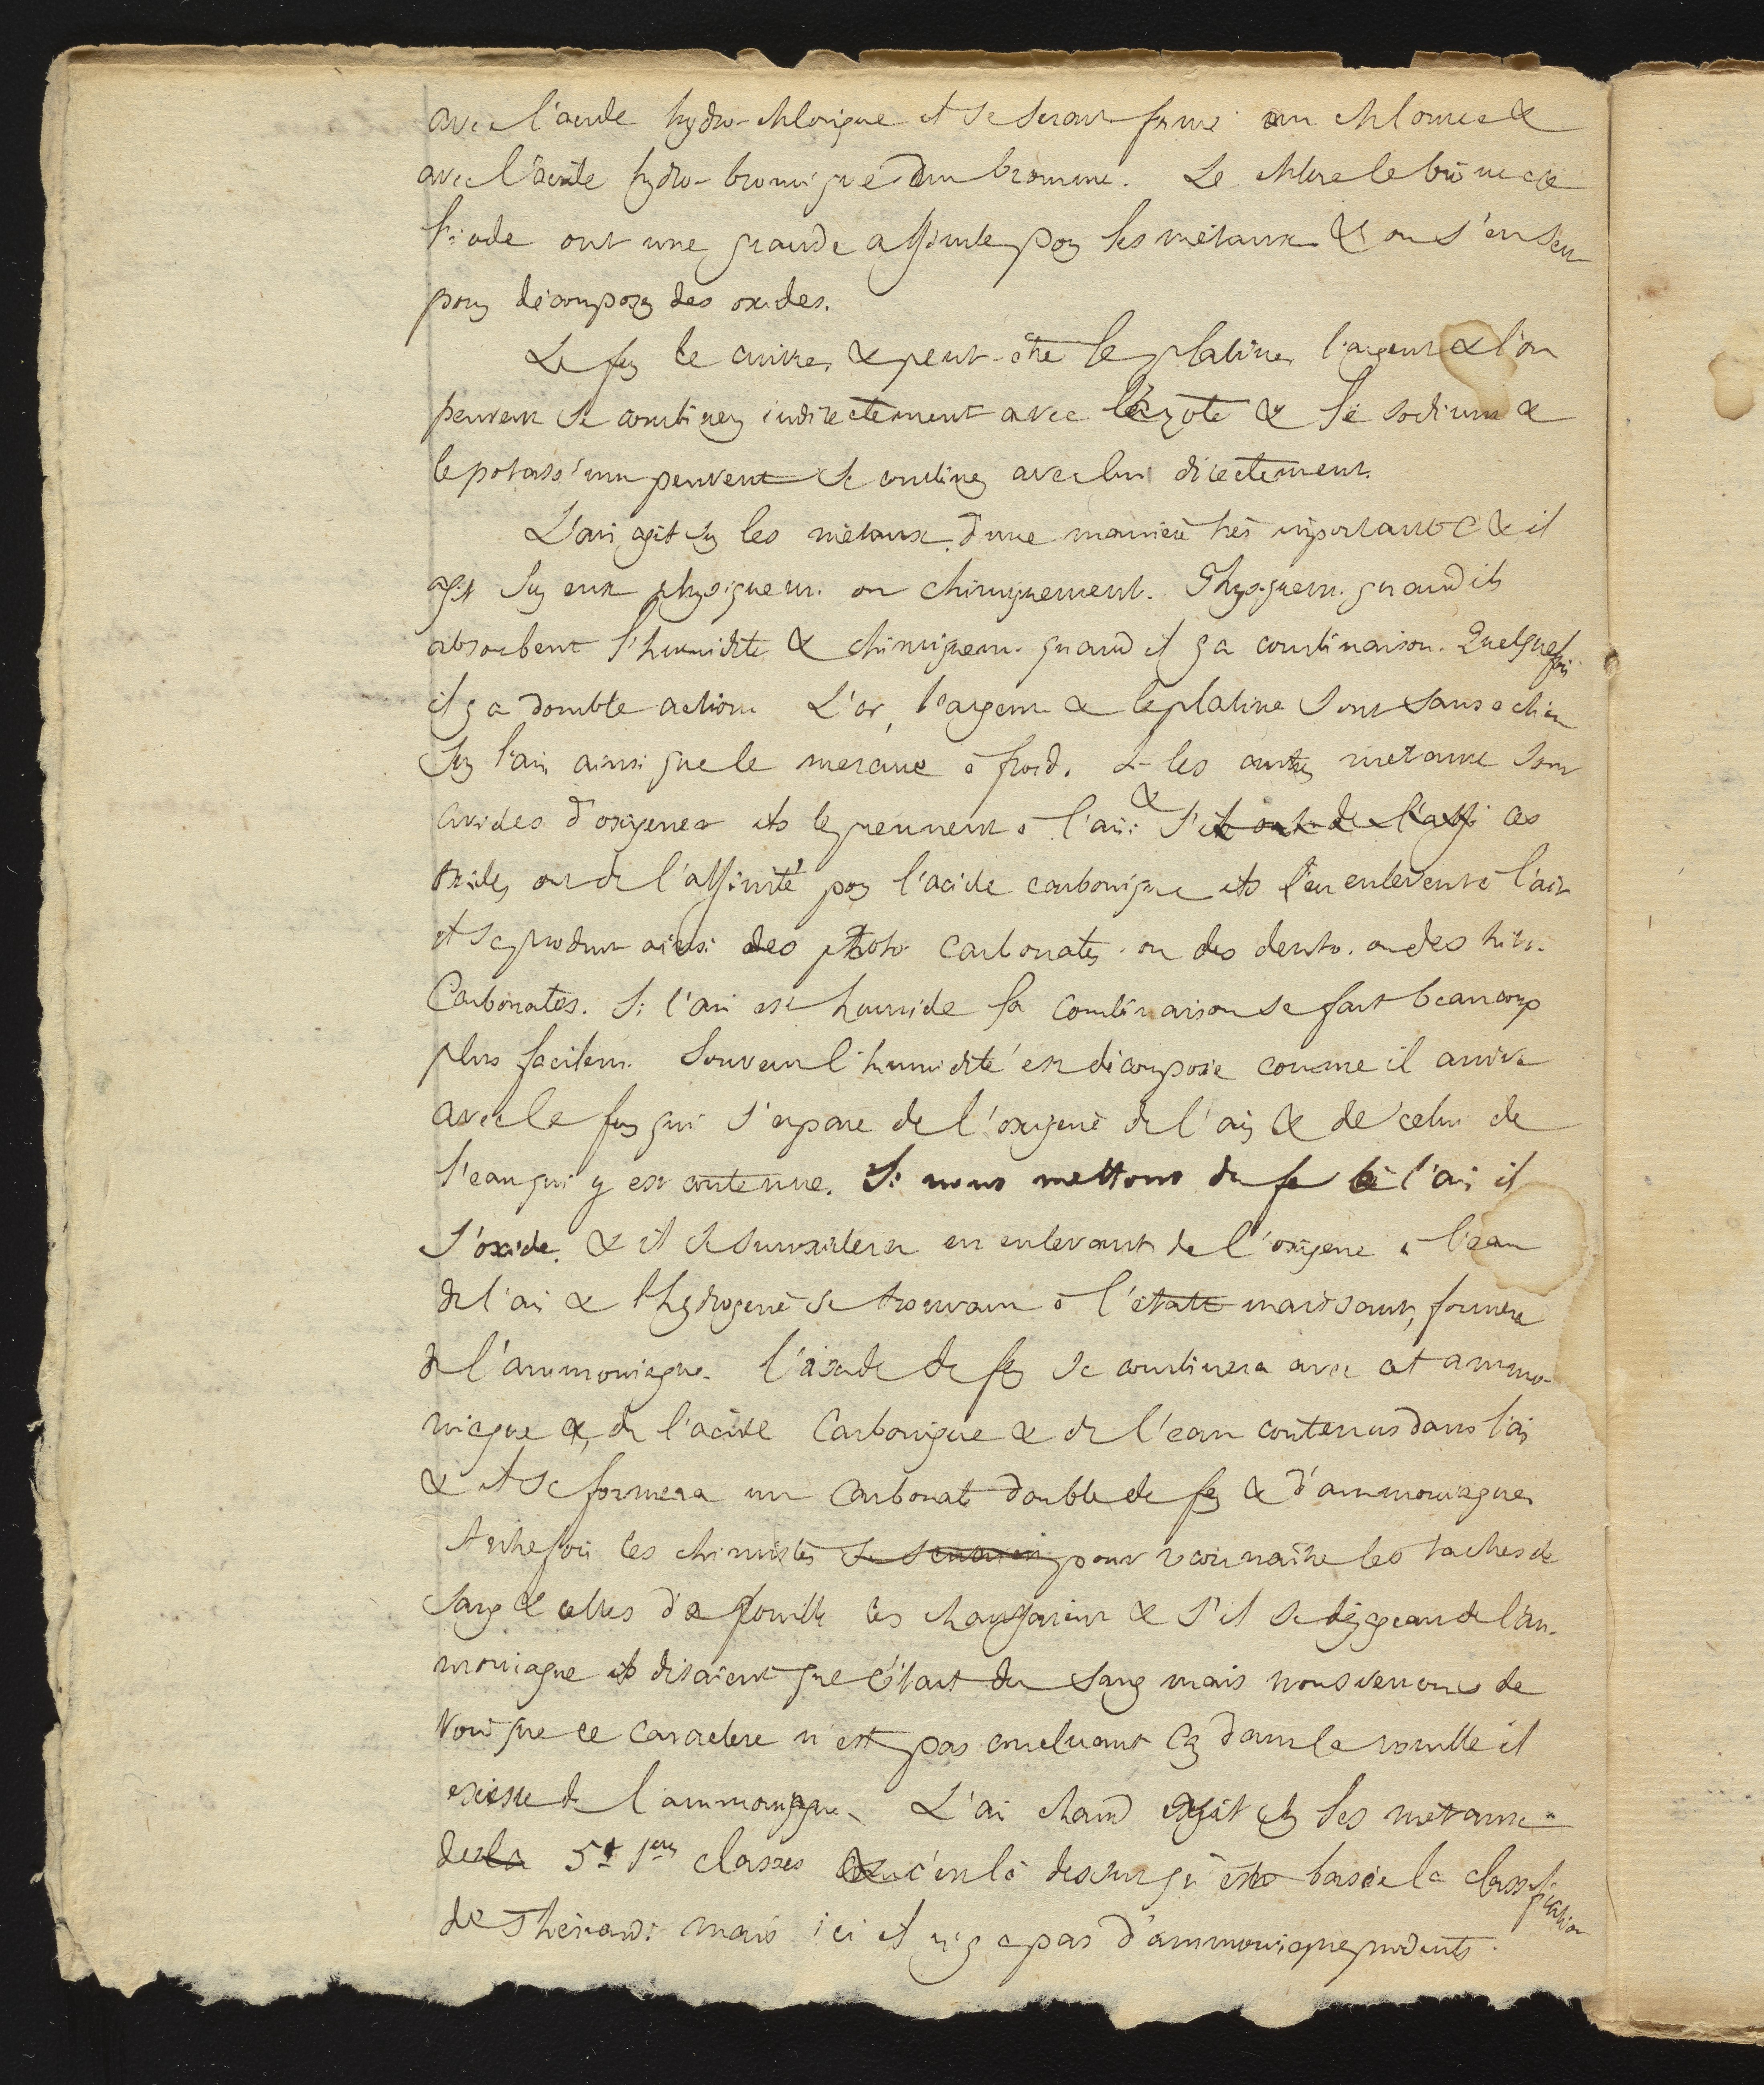 avec l'acide hydro-chlorique il se serait formé un chlorure &
avec l'acide hydro-bromique un bromure. Le chlore le brôme &
l'iode ont une grande affinité pour les métaux & on s'en sert
pour décomposer des oxides.
Le fer le cuivre, & peut-être le platine, l'argent & l'or
peuvent se combiner indirectement avec l'azote & le sodium &
le potassium peuvent se combiner avec lui directement.
L'air agit sur les métaux d'une manière très importante & il
agit sur eux physiquem. ou chimiquement. Physiquem. quand ils
absorbent l'humidité & chimiquem. quand il y a combinaison. Quelquefois
il y a double action. L'or, l'argent & le platine sont sans action
sur l'air ainsi que le mercure à froid. les autres métaux sont
avides d'oxigene ils le prennent à l'air & s'ils ont de l'affi ces
oxides ont de l'affinité pour l'acide carbonique ils l'en enlevent à l'air
il se produit ainsi des proto carbonates ou des deuto. ou des trito.
Carbonates. Si l'air est humide la combinaison se fait beaucoup
plus facilem. Souvent l'humidité est décomposée comme il arrive
avec le fer qui s'empare de l'oxigene de l'air & de celui de
l'eau qui y est contenue. Si nous mettons du fer à l'air il
s'oxide. & il se suroxidera en enlevant de l'oxigene à l'eau
de l'air & l'hydrogene se trouvant à l'état naissant, formera
de l'ammoniaque. l'oxide de fer se combinera avec cet ammo-
niaque & de l'acide Carbonique & de l'eau contenus dans l'air
& il se formera un Carbonate double de fer & d'ammoniaque
Autrefois les chimistes pour reconnaitre les taches de
sang & celles de rouille les chauffaient & s'il se dégageait de l'am-
moniaque ils disaient que c'était du sang mais nous venons de
voir que ce caractere n'est pas concluant car dans la rouille il
existe de l'ammoniaque. L'air chaud agit sur les métaux
des la 5 1eres classes & c'est là dessus qu'est basée la classification
de Thénard. mais ici il n'y a pas d'ammoniaque produits.